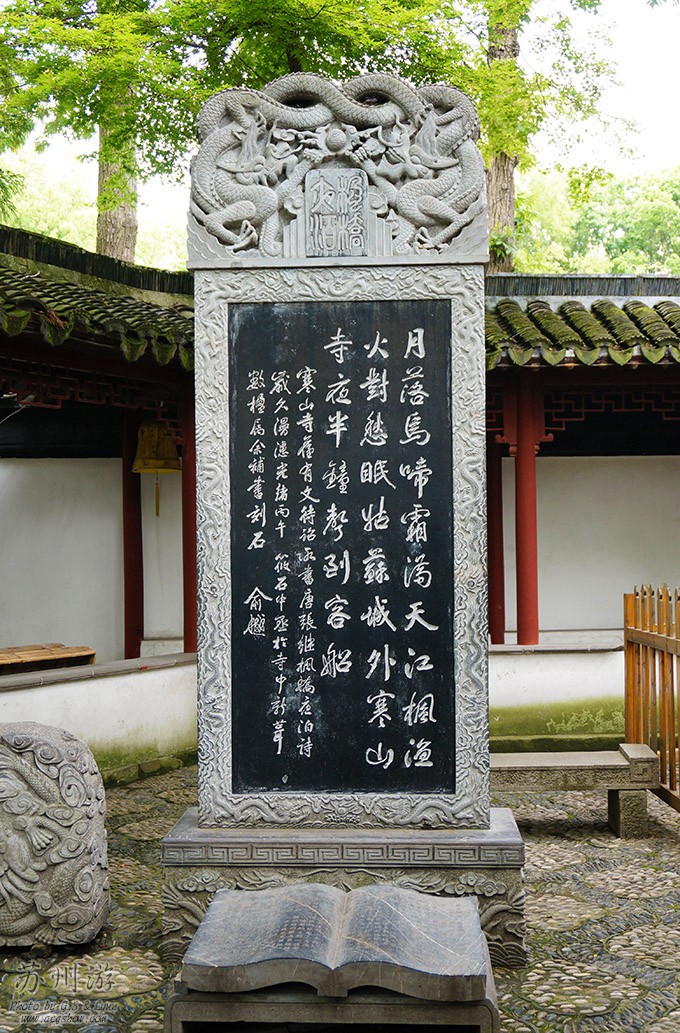 楓橋
夜泊
月落烏啼霜滿天江楓漁
火對愁眠姑蘇城外寒山
寺夜半鐘聲到客船
寒山寺舊有文待詔所書唐張繼楓橋夜泊詩
歲久漫漶光緒丙午筱石中丞於寺中新葺
數楹屬余補書刻石 俞樾
苏州游
Photo by
www.acgshow.com